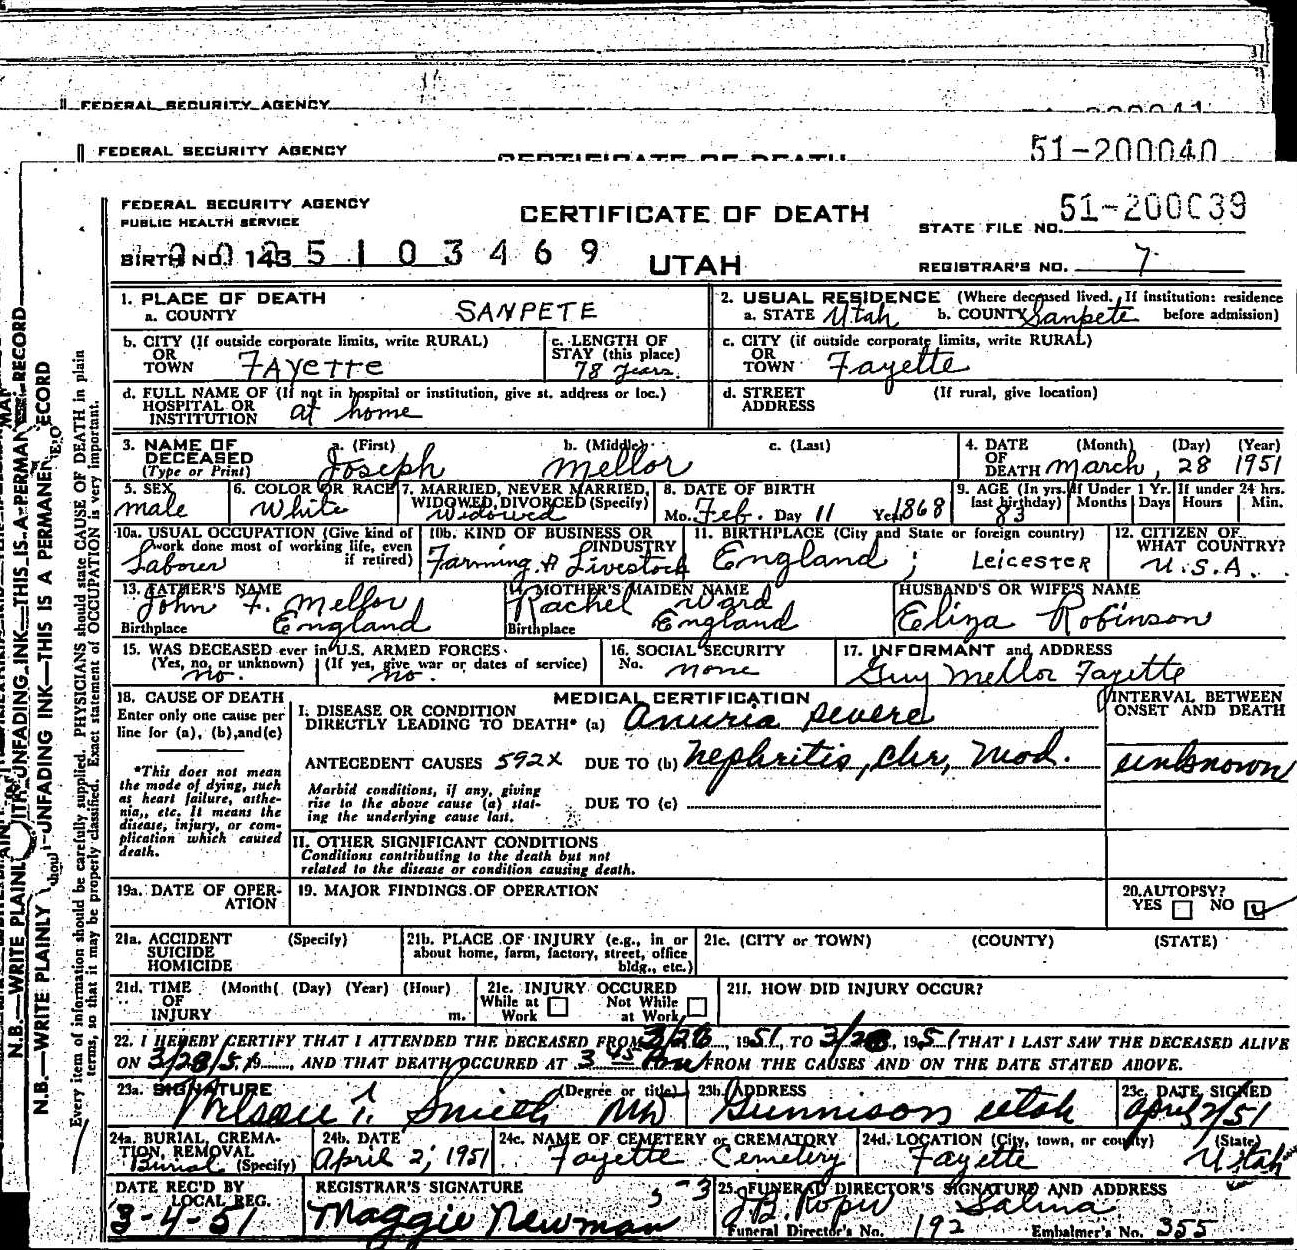 FEDERAL SECURITY AGENCY
FEDERAL SECURITY AGENCY
CERTIFICATE OF DEATH
51-200040
FEDERAL SECURITY AGENCY
PUBLIC HEALTH SERVICE
CERTIFICATE OF DEATH
STATE FILE NO. 51-200039
BIRTH NO. 143
5 1 0 3 4 6 9
UTAH
REGISTRAR'S NO. 7
1. PLACE OF DEATH
a. COUNTY SANPETE
2. USUAL RESIDENCE (Where deceased lived. If institution: residence before admission)
a. STATE Utah b. COUNTY Sanpete
b. CITY (If outside corporate limits, write RURAL)
OR
TOWN FAyette
c. LENGTH OF
STAY (this place)
78 years.
c. CITY (if outside corporate limits, write RURAL)
OR
TOWN Fayette
d. FULL NAME OF (If not in hospital or institution, give st. address or loc.)
HOSPITAL OR
INSTITUTION at home
d. STREET
ADDRESS
(If rural, give location)
3. NAME OF
DECEASED
(Type or Print)
a. (First) b. (Middle) c. (Last)
Joseph Mellor
4. DATE
OF
DEATH
(Month) (Day) (Year)
March, 28 1951
5. SEX
male
6. COLOR OR RACE
White
7. MARRIED, NEVER MARRIED,
WIDOWED, DIVORCED (Specify)
Widowed
8. DATE OF BIRTH
Mo. Feb. Day 11 Year 1868
9. AGE (In yrs.
last birthday)
83
If Under 1 Yr.
Months Days
If under 24 hrs.
Hours Min.
10a. USUAL OCCUPATION (Give kind of
work done most of working life, even
if retired)
Labourer
10b. KIND OF BUSINESS OR
INDUSTRY
Farming & Livestock
11. BIRTHPLACE (City and State or foreign country)
England; LEICESTER
12. CITIZEN OF
WHAT COUNTRY?
U.S.A.
13. FATHER'S NAME
John F. Mellor
Birthplace England
14. MOTHER'S MAIDEN NAME
Rachel Ward
Birthplace England
HUSBAND'S OR WIFE'S NAME
Eliza Robinson
15. WAS DECEASED ever in U.S. ARMED FORCES
(Yes, no, or unknown) (If yes, give war or dates of service)
no. no.
16. SOCIAL SECURITY
No. none
17. INFORMANT and ADDRESS
Guy Mellor Fayette
18. CAUSE OF DEATH
Enter only one cause per
line for (a), (b), and (c)
*This does not mean
the mode of dying, such
as heart failure, asthe-
nia,, etc. It means the
disease, injury, or com-
plication which caused
death.
MEDICAL CERTIFICATION
I. DISEASE OR CONDITION
DIRECTLY LEADING TO DEATH* (a) Anuria severe
ANTECEDENT CAUSES 592X DUE TO (b) Nephritis, chr, mod.
Morbid conditions, if any, giving
rise to the above cause (a) stat-
ing the underlying cause last.
DUE TO (c)
INTERVAL BETWEEN
ONSET AND DEATH
unknown
II. OTHER SIGNIFICANT CONDITIONS
Conditions contributing to the death but not
related to the disease or condition causing death.
19a. DATE OF OPER-
ATION
19. MAJOR FINDINGS OF OPERATION
20. AUTOPSY?
YES NO
21a. ACCIDENT
SUICIDE
HOMICIDE
(Specify)
21b. PLACE OF INJURY (e.g., in or
about home, farm, factory, street, office
bldg., etc.)
21c. (CITY or TOWN) (COUNTY) (STATE)
21d. TIME
OF
INJURY
(Month) (Day) (Year) (Hour)
m.
21e. INJURY OCCURED
While at
Work
Not While
at Work
21f. HOW DID INJURY OCCUR?
22. I HEREBY CERTIFY THAT I ATTENDED THE DECEASED FROM 3/26, 1951, TO 3/28, 1951 (THAT I LAST SAW THE DECEASED ALIVE
ON 3/28/51, AND THAT DEATH OCCURED AT 3 45 FROM THE CAUSES AND ON THE DATE STATED ABOVE.
23a. SIGNATURE (Degree or title)
Smith MD
23b. ADDRESS
Gunnison Utah
23c. DATE SIGNED
April 2/51
24a. BURIAL, CREMA-
TION, REMOVAL
(Specify)
Burial
24b. DATE
April 2, 1951
24c. NAME OF CEMETERY or CREMATORY
Fayette Cemetery
24d. LOCATION (City, town, or county) (State)
Fayette Utah
DATE REC'D BY
LOCAL REG.
3-4-51
REGISTRAR'S SIGNATURE
Maggie Newman
25. FUNERAL DIRECTOR'S SIGNATURE AND ADDRESS
Salina
Funeral Director's No. 192 Embalmer's No. 355
N.B.—WRITE PLAINLY WITH UNFADING INK—THIS IS A PERMANENT RECORD
N.B.—WRITE PLAINLY UNFADING INK—THIS IS A PERMANENT RECORD
Every item of information should be carefully supplied. PHYSICIANS should state CAUSE OF DEATH in plain
terms, so that it may be properly classified. Exact statement of OCCUPATION is very important.